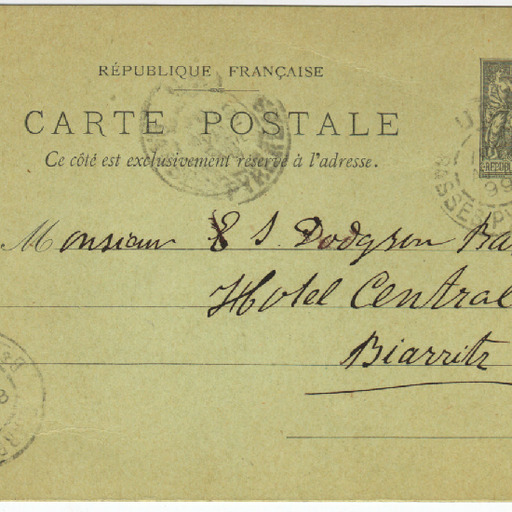 RÉPUBLIQUE FRANÇAISE
CARTE POSTALE
Ce côté est exclusivement réservé à l'adresse.
Monsieur E S. Dodgson Ba
Hotel Central
Biarritz
99
BASSES-PY